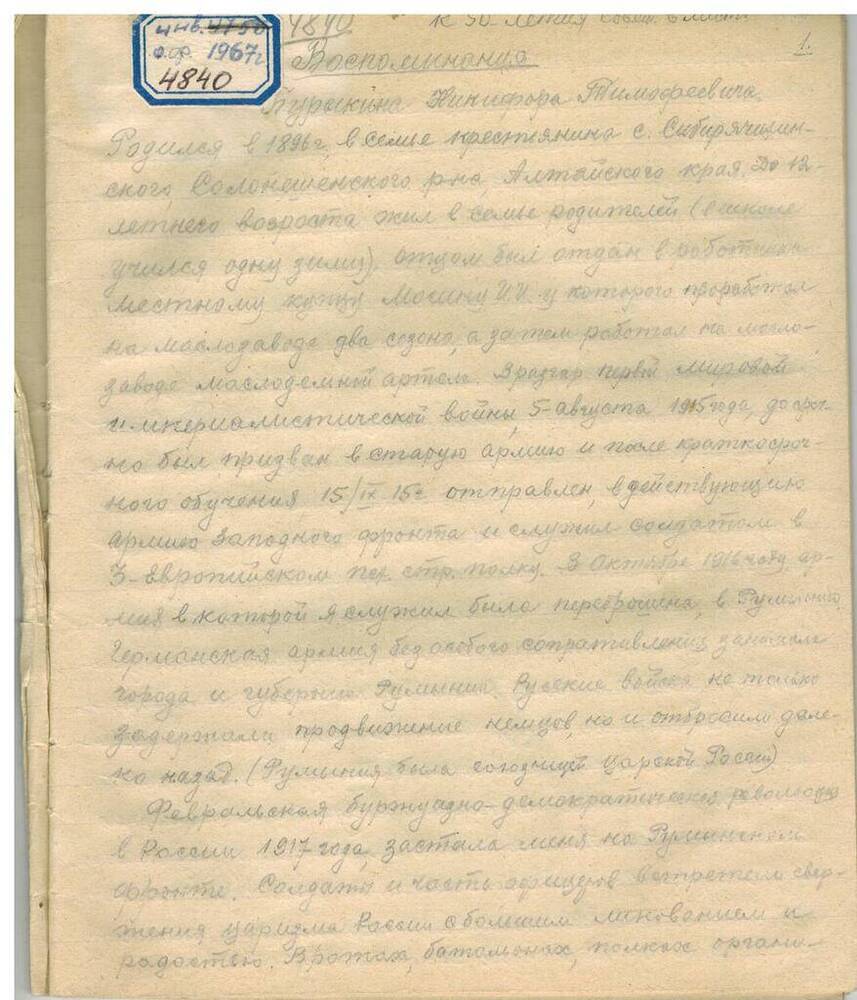 инв. 4750 4840 К 50-летия совет. власти
о.ф. 1967г 1.
4840 Воспоминания
Бурыкина Никифора Тимофеевича.
Родился в 1896г, в семье крестьянина с. Сибирячихин-
ского, Солонешенского р-на, Алтайского края. До 12-
летнего возроста жил в семье родителей (в школе
учился одну зиму). отцом был отдан в работники
местному купцу Мосину И.И. у которого проработал
на маслозаводе два сезона, а затем работал на масло-
заводе маслодемной артели. В разгар первой мировой
империалистической войны, 5-августа 1915 года, досроч-
но был призван в старую армию и после краткосроч-
ного обучения 15/IX 15г отправлен, в действующию
армию Западного фронта и служил солдатом в
3-Европийском стр. полку. В Октябре 1916 году, ар-
мия в которой я служил была переброшина, в Румынию
Германская армия без особого сопративления занимала
города и губернии Румынии. Русские войска не только
задержали продвижение немцов, но и отбросили дале-
ко назад. (Румыния была союзницей царской России)
Февральская буржуазно-демократическая революция
в России 1917 года, застала меня на Румынском
фронте. Солдаты и часть офицеров встретили свер-
жения царизма России с большим ликованием и
радостью. В ротах, батальонах, полках органи-